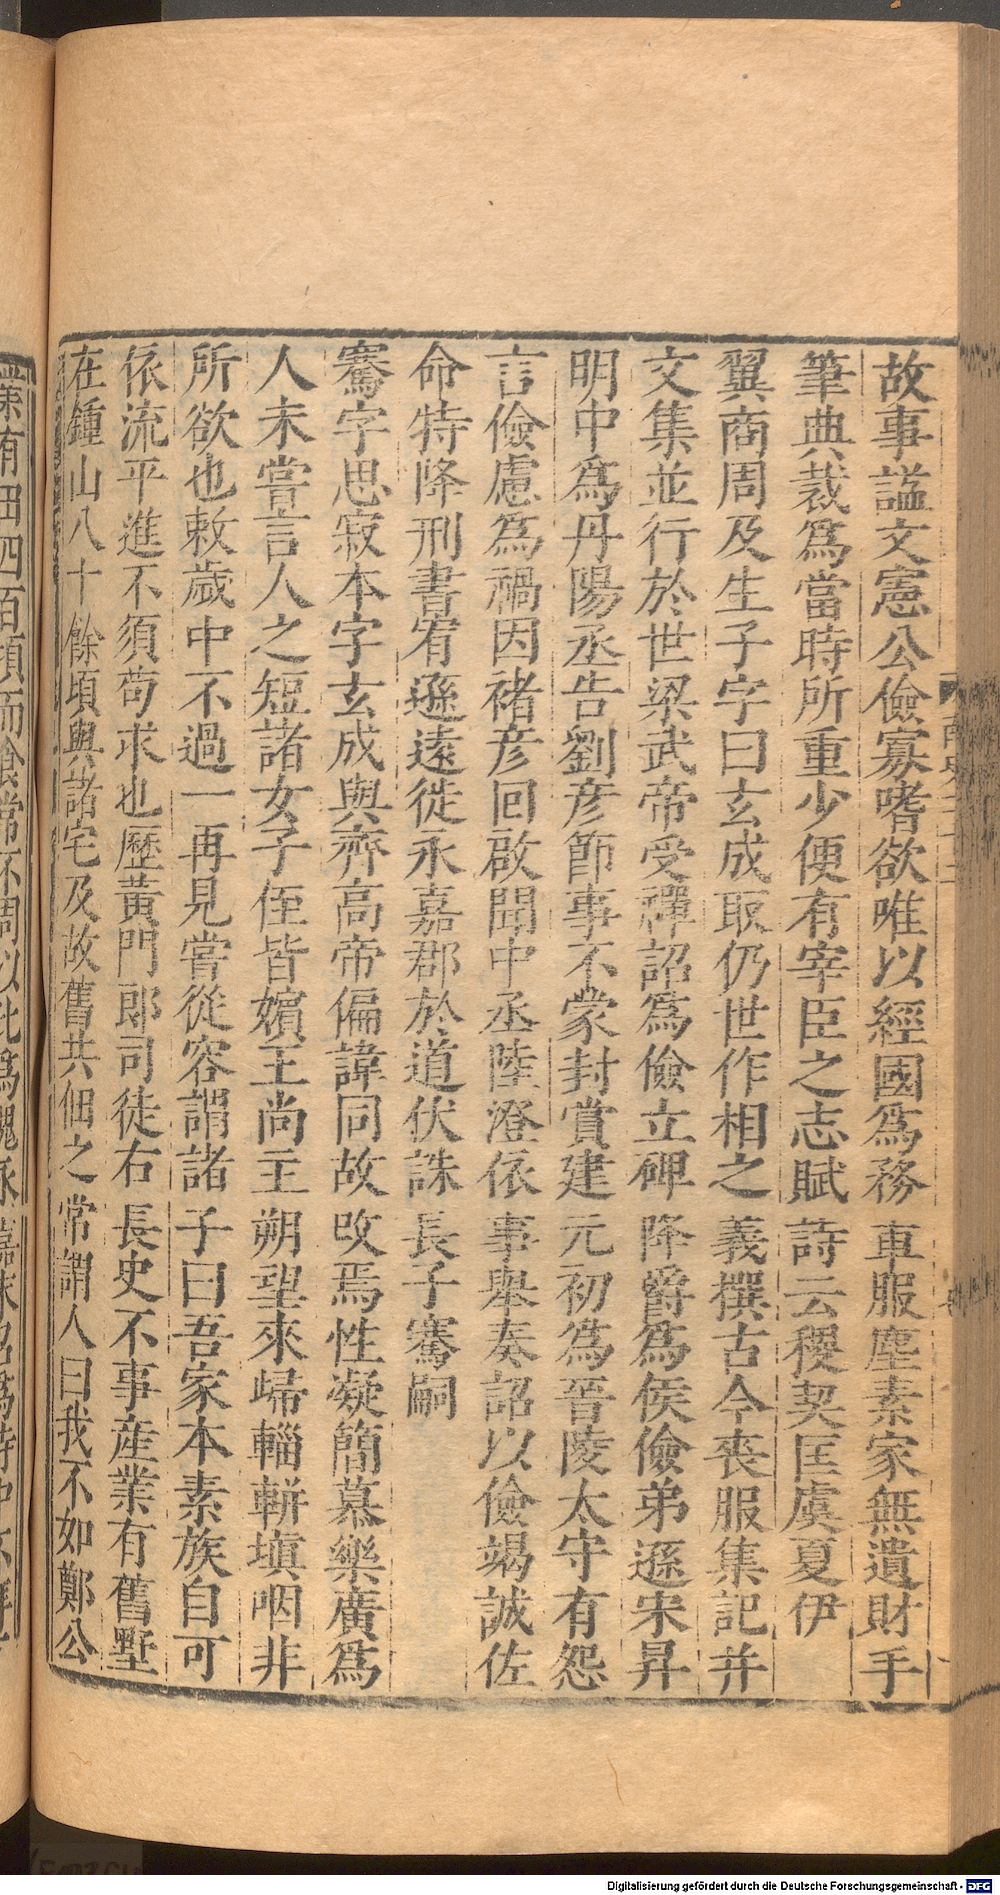 故事謚文憲公儉寡嗜欲唯以經國爲務車服塵素家無遺財手
筆典裁爲當時所重少便有宰臣之志賦詩云稷契匡虞夏伊
翼商周及生子字曰玄成取仍世作相之義撰古今喪服集記并
文集並行於世梁武帝受禪詔爲儉立碑降爵爲侯儉弟遜宋昇
明中爲丹陽丞告劉彦節事不蒙封賞建元初爲晉陵太守有怨
言儉慮爲禍因褚彦回啟聞中丞陸澄依事舉奏詔以儉竭誠佐
命特降刑書宥遜遠徙永嘉郡於道伏誅長子騫嗣
騫字思寂本字玄成與齊高帝偏諱同故改焉性凝簡慕樂廣爲
人未嘗言人之短諸女子侄皆嬪王尚主朔望來歸輜軿塡咽非
所欲也敕歲中不過一再見嘗從容謂諸子曰吾家本素族自可
依流平進不須苟求也歷黃門郎司徒右長史不事産業有舊墅
在鍾山八十餘頃與諸宅及故舊共佃之常謂人曰我不如鄭公
業有田四百頃而食常不周以此爲愧永嘉末召爲侍中不拜
Digitalisierung gefördert durch die Deutsche Forschungsgemeinschaft - DFG